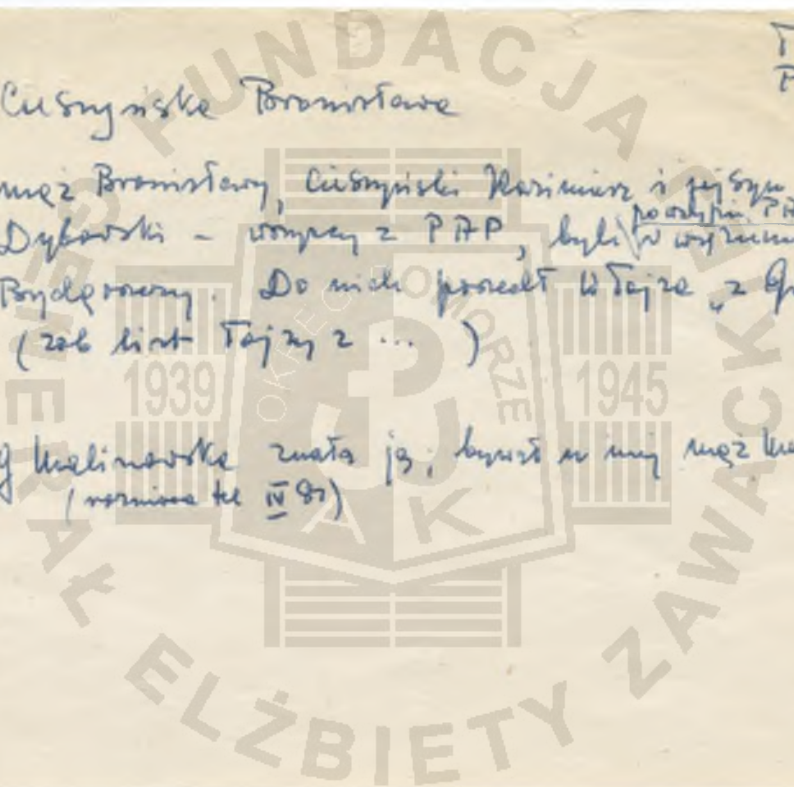 Cieszyńska Bronisława
mąż Bronisławy, Cieszyński Kazimierz i jej syn
Dybowski - wszyscy z PAP, byli w więzieniu
Bydgoszczy. Do nich poszedł W Łajza „z
(zob list Łajzy z ... )
Malinowska znała ją; bywał u niej mąż
(rozmowa tel IV 81)
FUNDACJA
GENERAŁ ELŻBIETY ZAWACKIEJ
OKRĘG POMORZE
1939 1945
AK